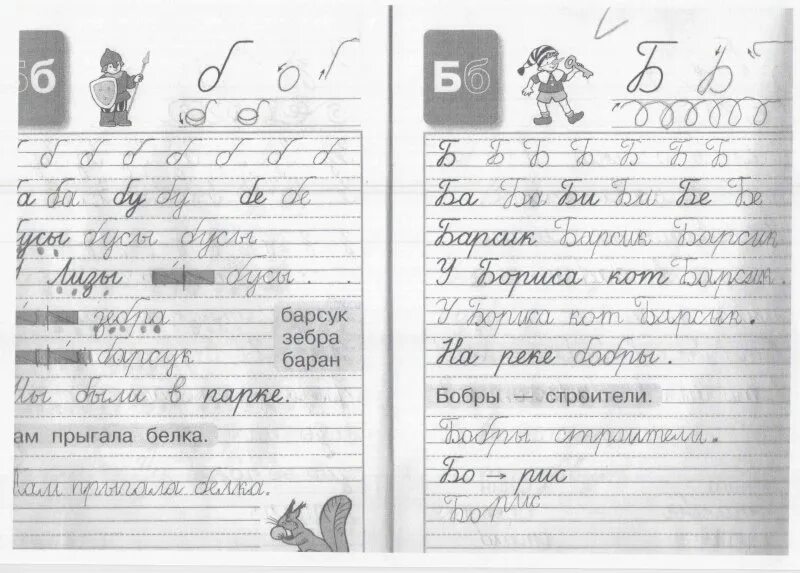 Бб
б
б б б б б б б б
ба ба бу бу бе бе
бусы бусы бусы
У Лизы бусы.
зебра
барсук
барсук
зебра
баран
Мы были в парке.
Там прыгала белка.
Там прыгала белка.
Бб
Б Б
Б Б Б Б Б Б Б
Ба Ба Би Би Бе Бе
Барсик Барсик Барсик
У Бориса кот Барсик.
У Бориса кот Барсик.
На реке бобры.
Бобры — строители.
Бобры строители.
Бо → рис
Борис